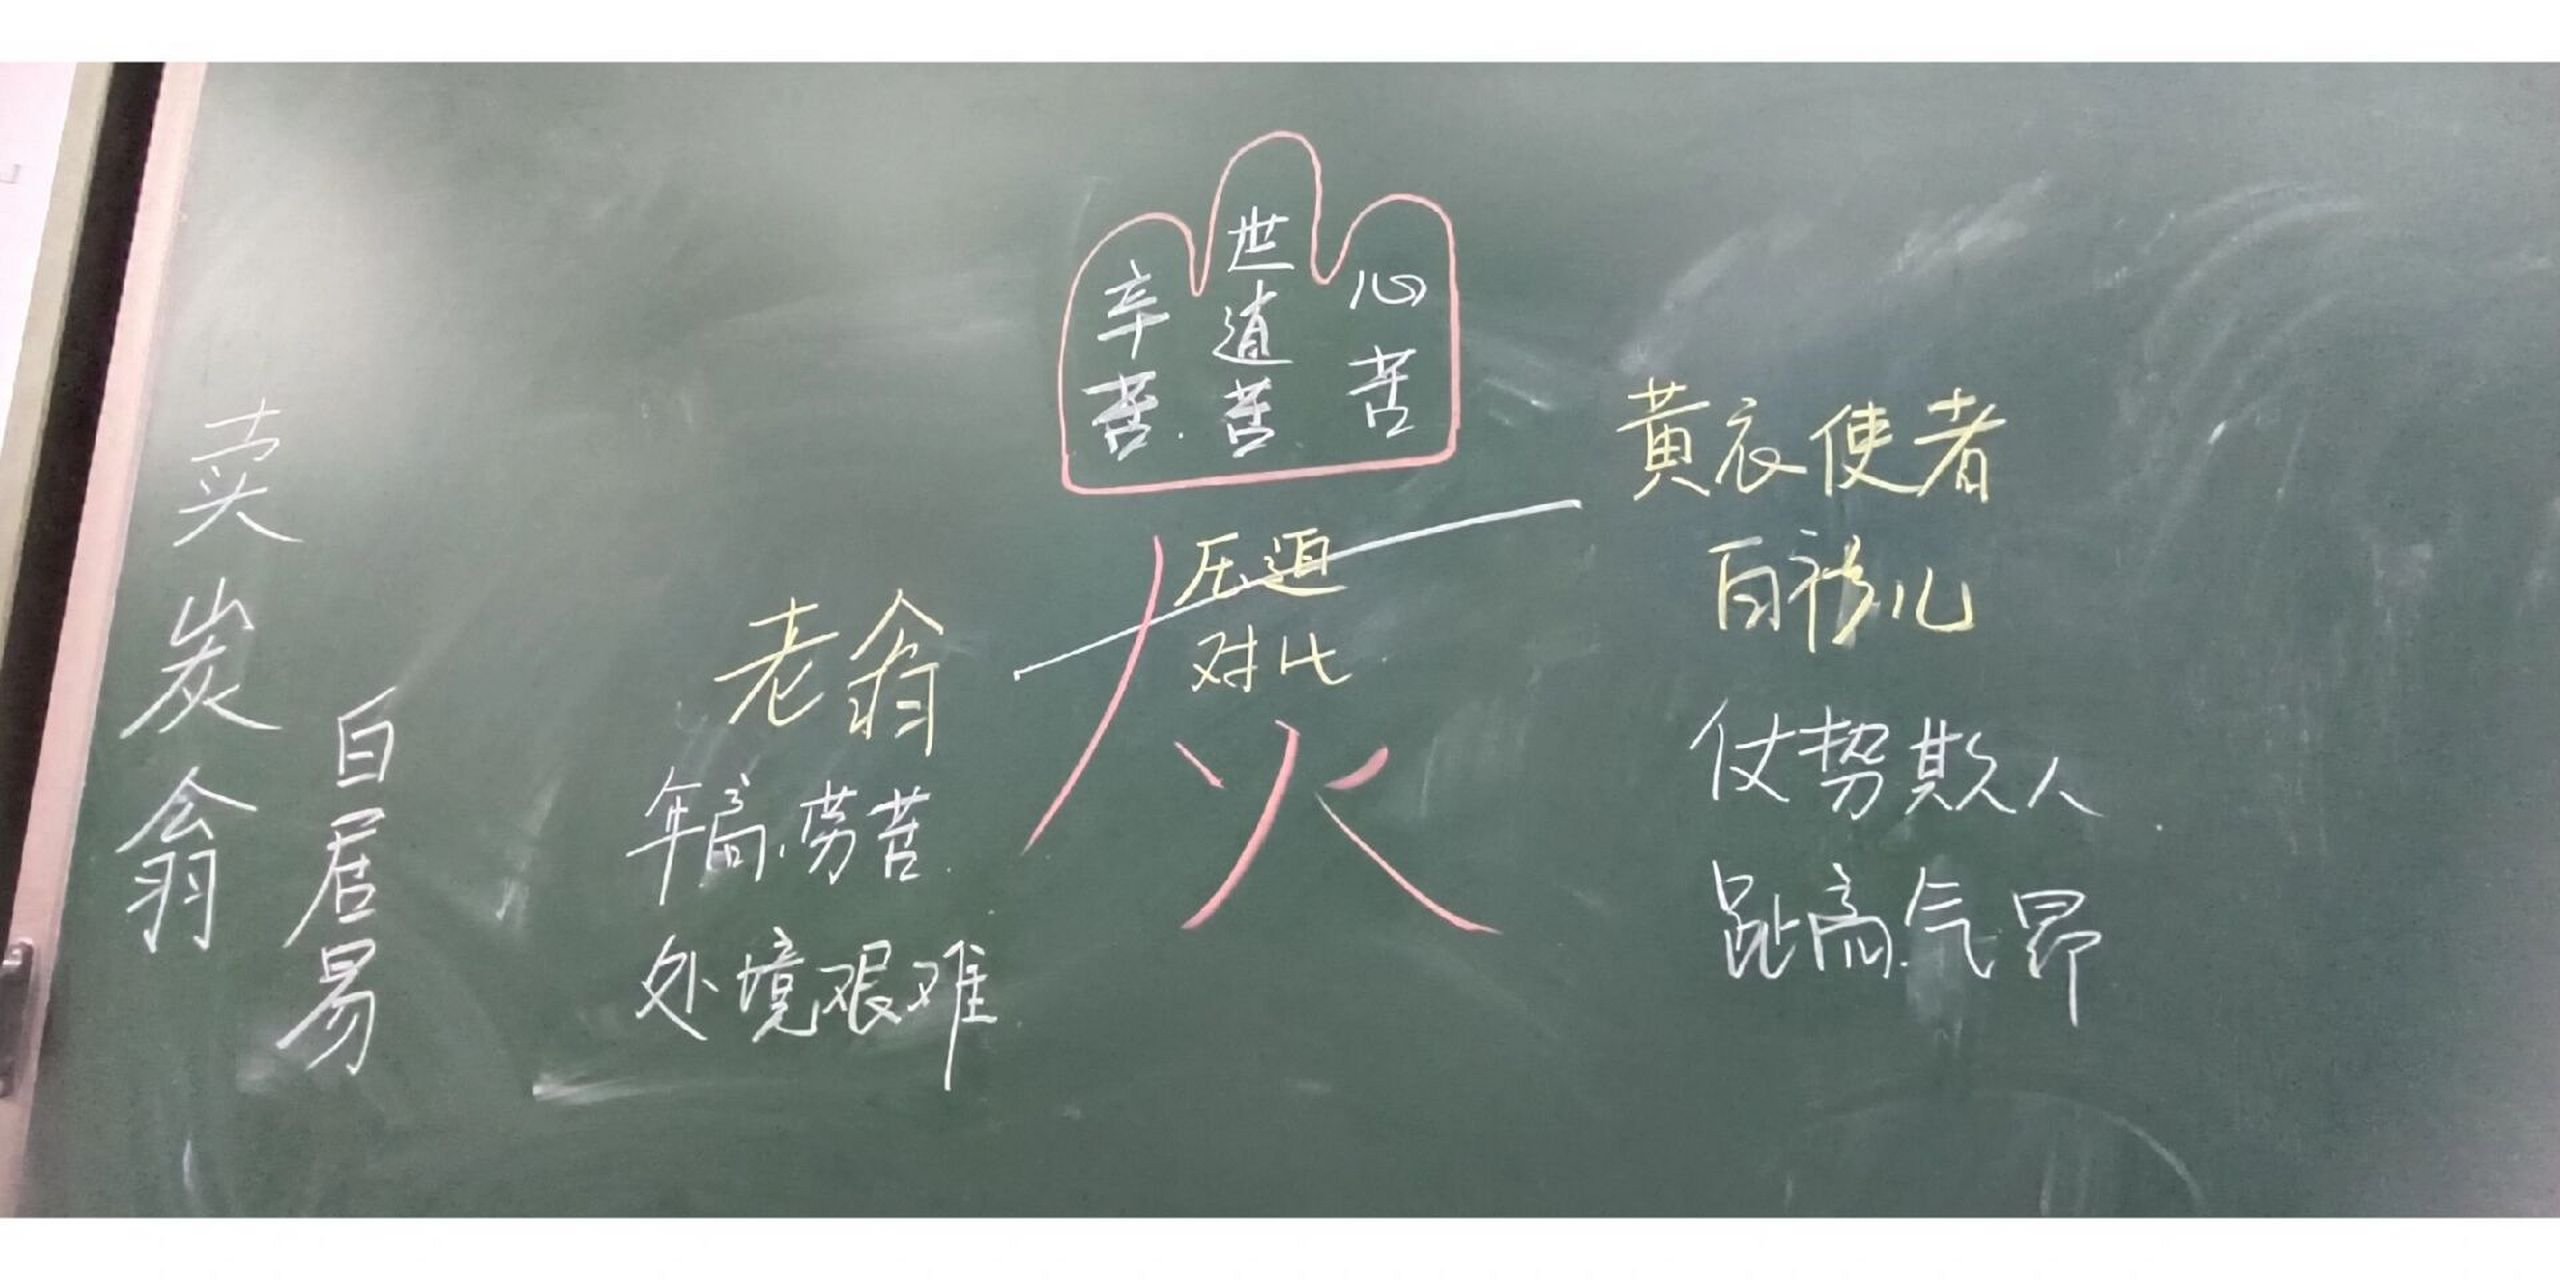 卖炭翁
白居易
辛苦
世道苦
心苦
压迫
对比
火
老翁
年高.劳苦.
处境艰难
黄衣使者
白衫儿
仗势欺人.
趾高气昂